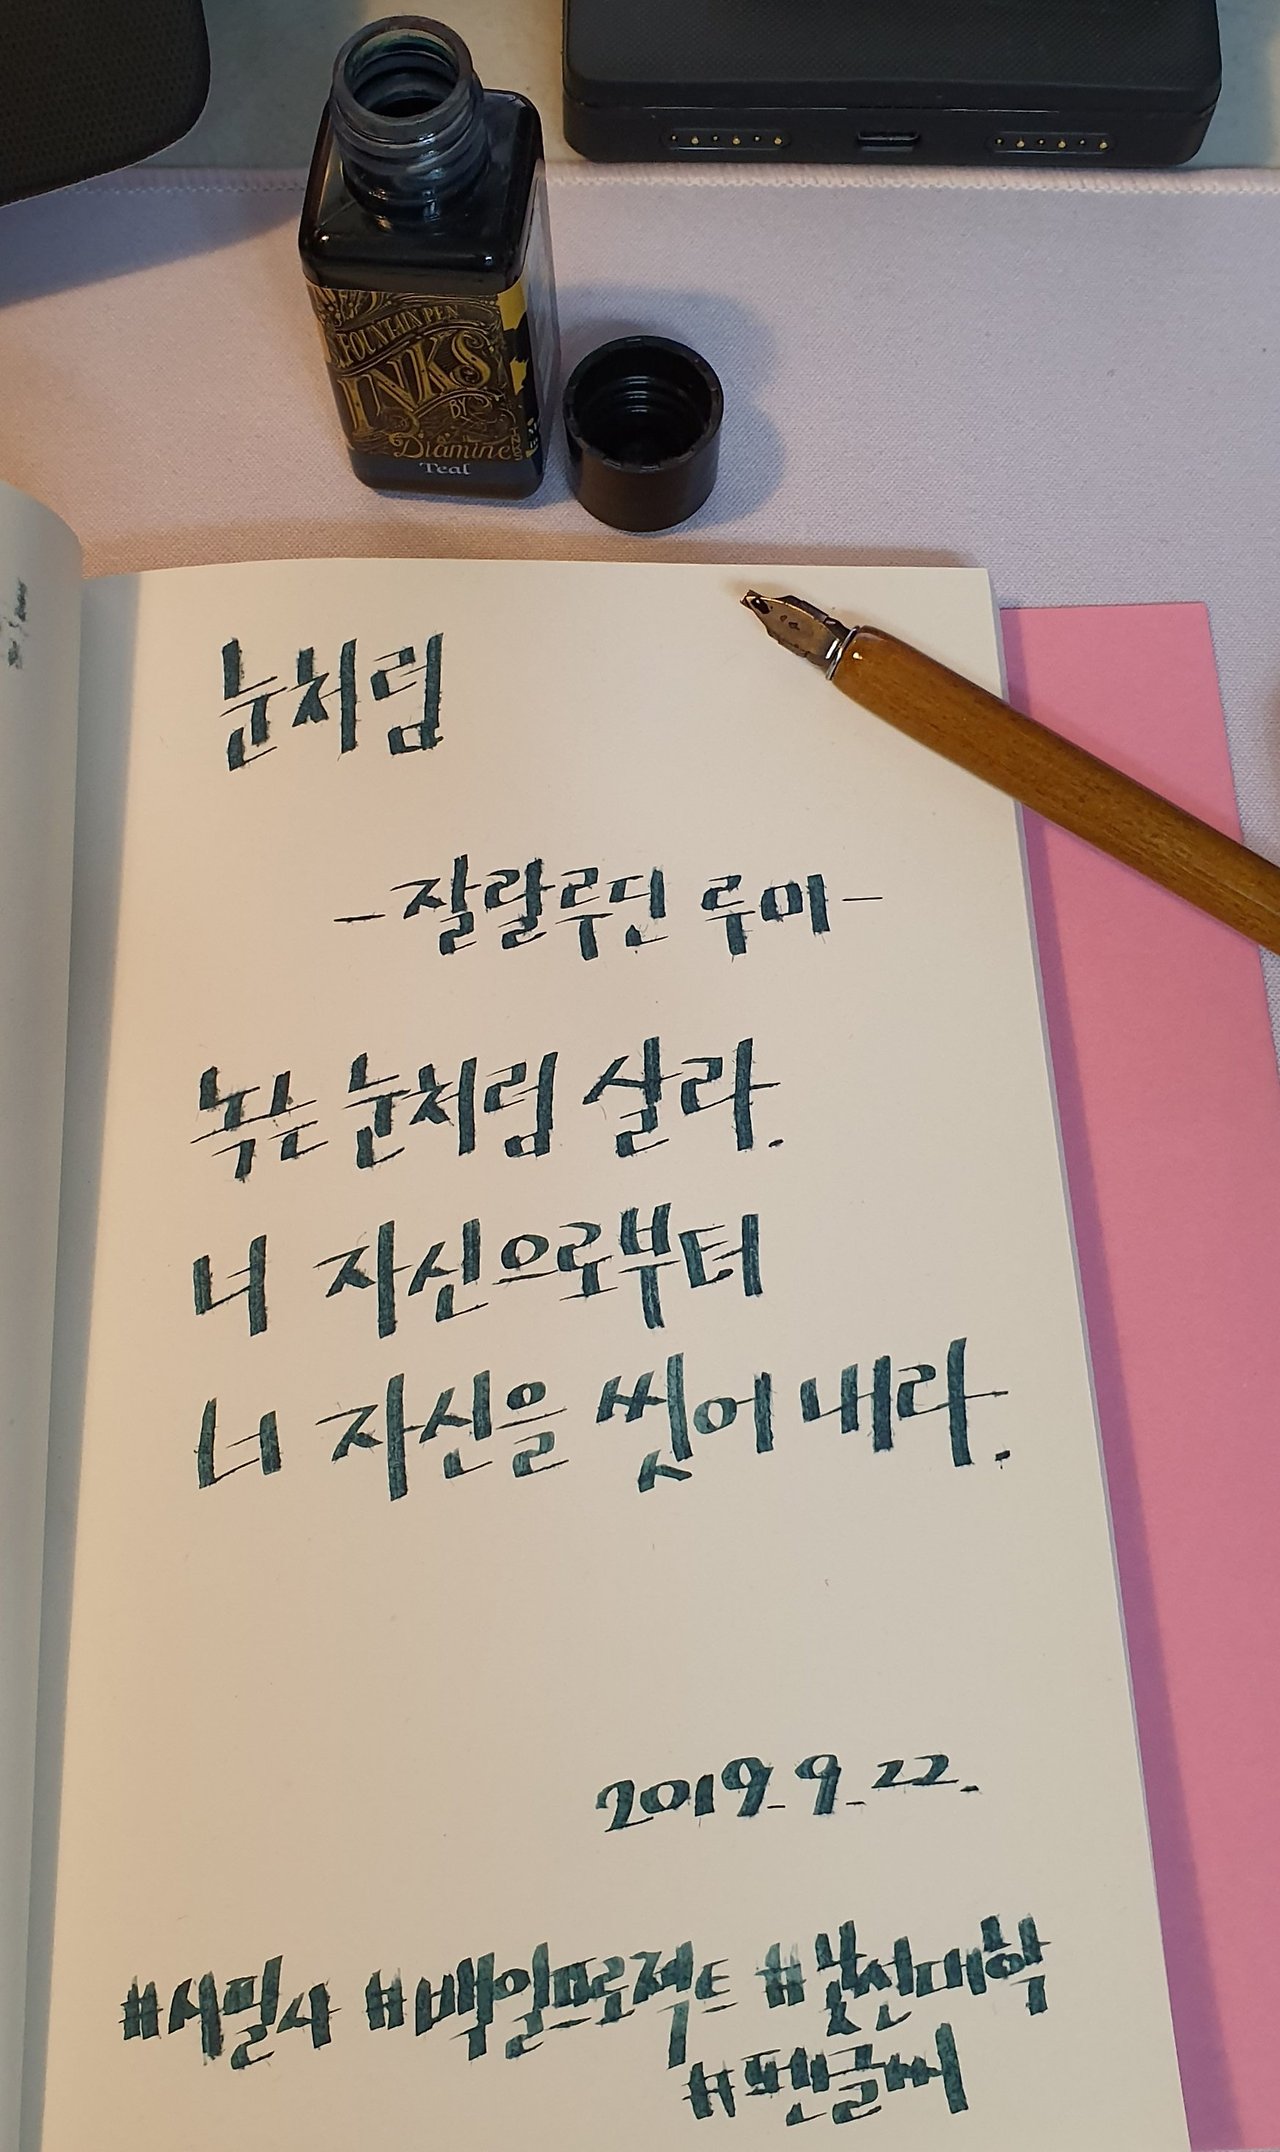 FOUNTAIN PEN
INKS
BY
Diamine
Teal
눈처럼
-잘랄루딘 루미-
녹는 눈처럼 살라.
너 자신으로부터
너 자신을 씻어 내라.
2019. 9. 22.
#시필사 #백일프로젝트 #낯선대학
#펜글씨